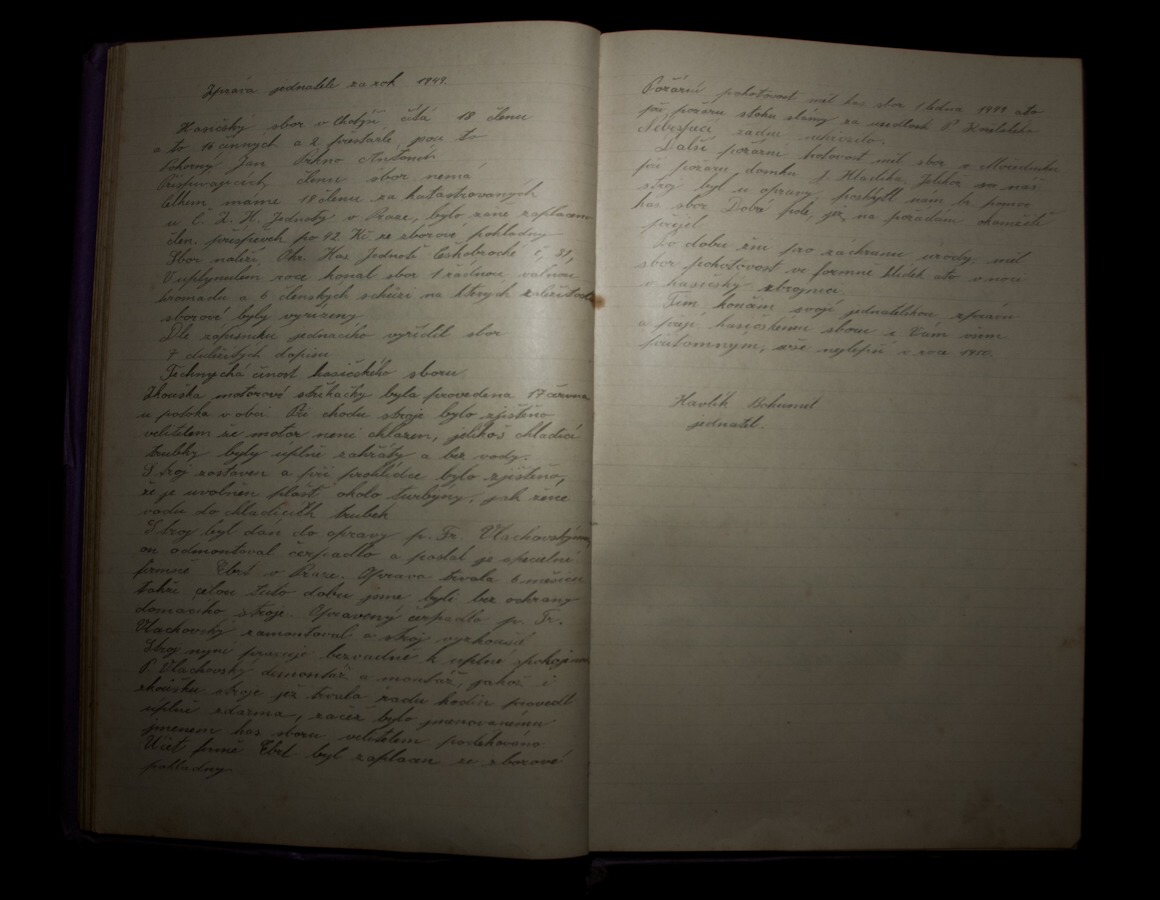 Zpráva jednatele za rok 1949.
Hasičský sbor v Chotýši čítá 18 členu
a to 16 činných a 2 přestárlé, jsou to
Pokorný Jan Antonín
Přispívajících členu sbor nemá
Celkem máme 18 členu za katastrovaných
u Č. Z. H. Jednoty v Praze, bylo zane zaplaceno
člen. příspěvek po 42 Kč ze sborové pokladny
Sbor náleží, Okr. Has Jednotě Českobrodské č. 31,
V uplynulém roce konal sbor 1 řádnou valnou
hromadu a 6 členských schůzí na kterých záležitosti
sborové byly vyřízeny
Dle zápisníku jednacího vyřídil sbor
7 duležitých dopisu
Technychá činost hasičského sboru.
Zkouška motorové stříkačky byla provedena 17 června
u potoka v obci Při chodu stroje bylo zjištěno
velitelem že motor neni chlazen, jelikoš chladící
trubky byly uplně zahřáty a bez vody.
Stroj zastaven a při prohlídce bylo zjištěno,
že je uvolněn plášť okolo turbýny, jak žene
vodu do chladících trubek
Stroj byl dán do opravy p. Fr. Vlachovskýmu,
on odmontoval čerpadlo a poslal je specielní
firmně Ebrt v Praze. Oprava trvala 6 měsícu
takže celou tuto dobu jsme byli bez ochrany
domácího stroje. Opravený čerpadlo p. Fr.
Vlachovský zamontoval a stroj vyzkoušel
Stroj nyní pracuje bezvadně k uplné spokojenosti
P. Vlachovský demontáž a montáž, jakož i
zkoušku stroje jež trvala řadu hodin provedl
uplně zdarma, začež bylo jmenovanému
jmenem has sboru velitelem poděkováno.
Účet firmě Ebrt byl zaplacen ze sborové
pokladny
Požární pohotovost měl has sbor 1 ledna 1949 ato
při požáru stohu slámy za usedlostí P.
Nebezpečí žádné nehrozilo.
Další požární hotovost měl sbor v
při požáru domku J. Hladíka, Jelikož se náš
stroj byl v opravy poskytl nám br. pomoc
has sbor Dobré Pole, jež na požádání okamžitě
přijel
Po dobu žní pro záchranu úrody měl
sbor pohotovost ve formně hlídek ato v noci
v hasičský zbrojnici.
Tím končím svoji jednatelskou zprávu
a přeji hasičskému sboru i Vám všem
přítomným, vše nejlepší v roce 1950.
Havlík Bohumil
jednatel.